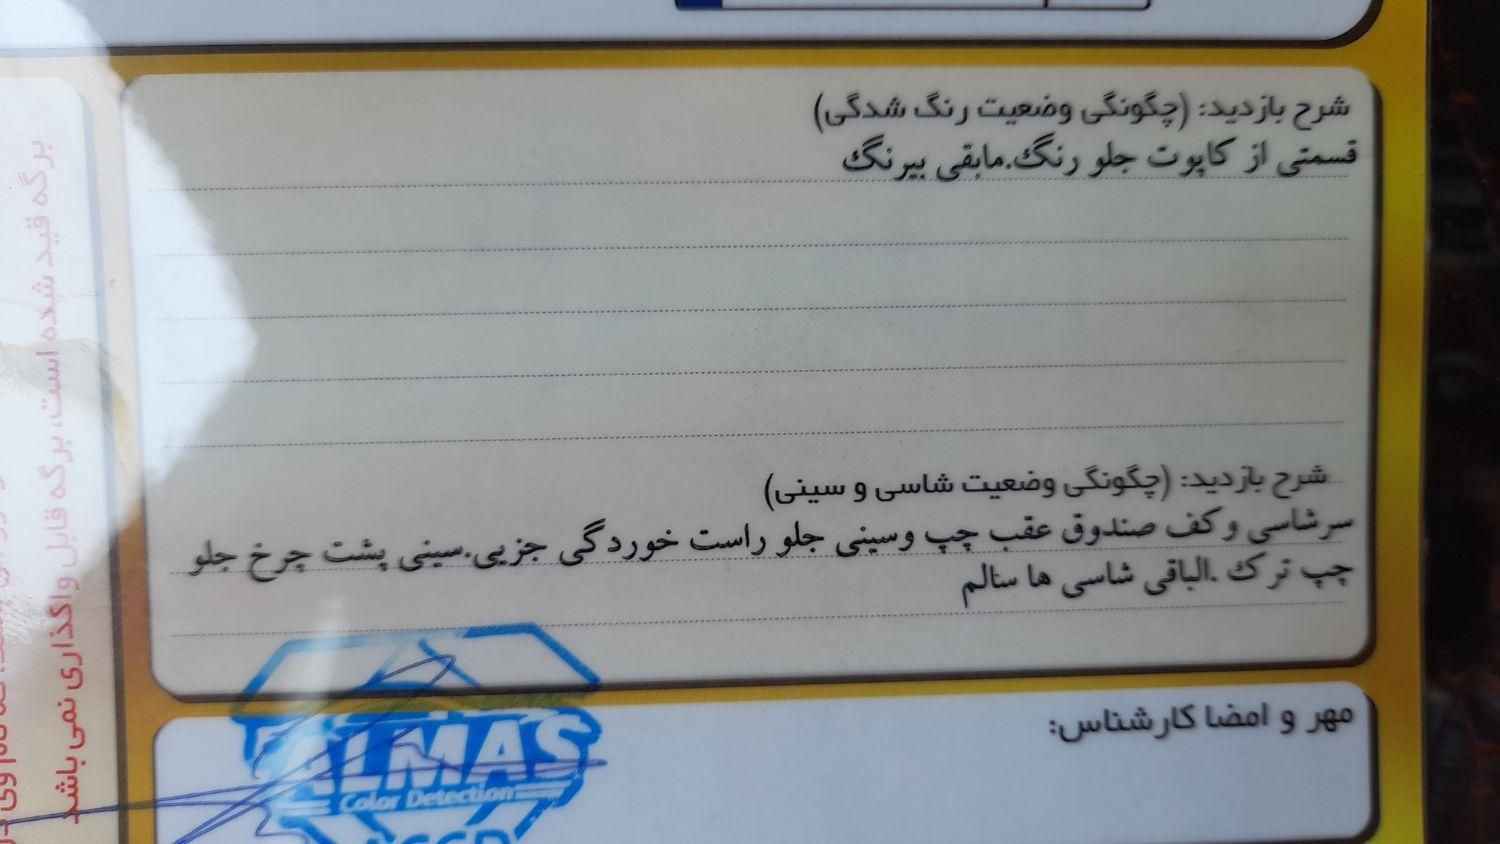 شرح بازدید: (چگونگی وضعیت رنگ شدگی)
قسمتی از کاپوت جلو رنگ.مابقی بیرنگ
شرح بازدید: (چگونگی وضعیت شاسی و سینی)
سرشاسی و کف صندوق عقب چپ وسینی جلو راست خوردگی جزیی.سینی پشت چرخ جلو
چپ ترک .الباقی شاسی ها سالم
مهر و امضا کارشناس:
ALMAS
Color Detection
برگه قید شده است، برگه قابل واگذاری نمی باشد